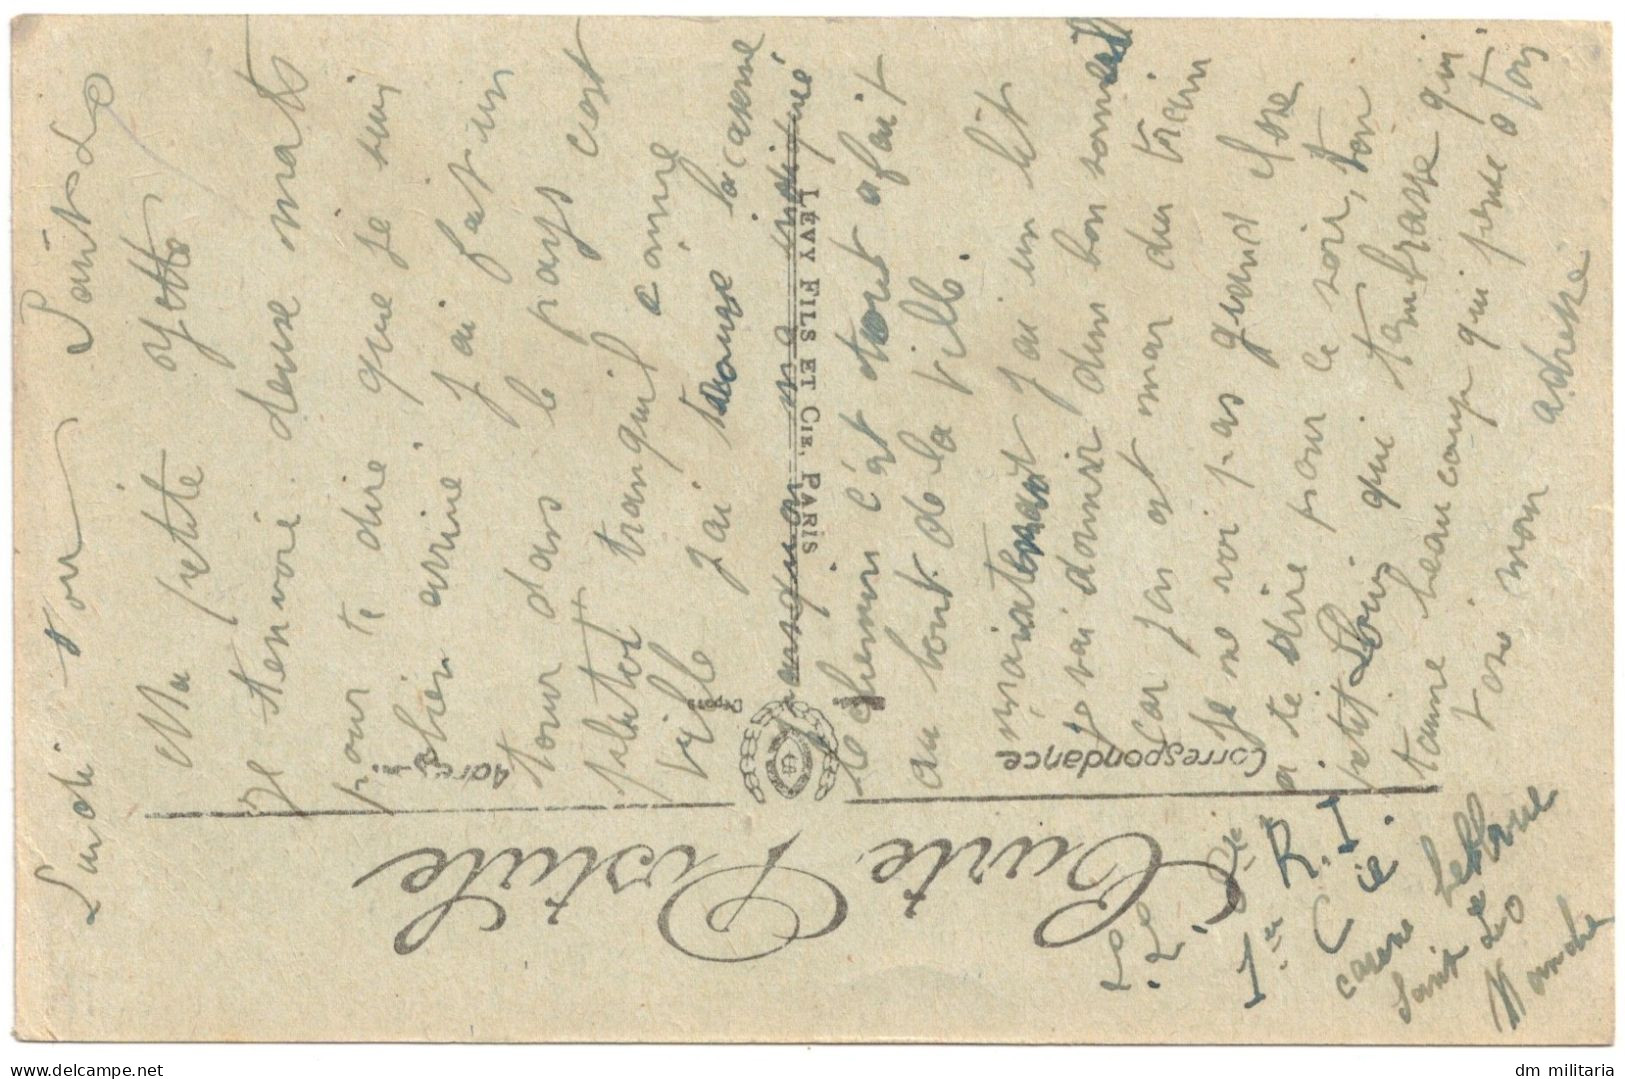 Lundi soir Saint-Lo
Ma petite Yette
Je t'envoie deux mots
pour te dire que je suis
bien arrivé, j'ai fait un
tour dans le pays c'est
plutot tranquil comme
ville j'ai trouvé la caserne
quelqu'un m'a indiqué
le chemin c'et tout afait
au bout de la ville.
maintenant j'ai un lit
je vai dormir d'un bon someil
car j'en et mar du train
Je ne voi pas grand chose
a te dire pour ce soir, ton
petit Loui qui t'embrasse qui
t'aime beaucoup qui pense a toi
voisi mon adresse
R.I.
1er Cie
caserne Bellevue
Saint Lo
Manche
Carte Postale
Correspondance
Adresse
LÉVY FILS ET CIE, PARIS
delcampe.net
dm_militaria